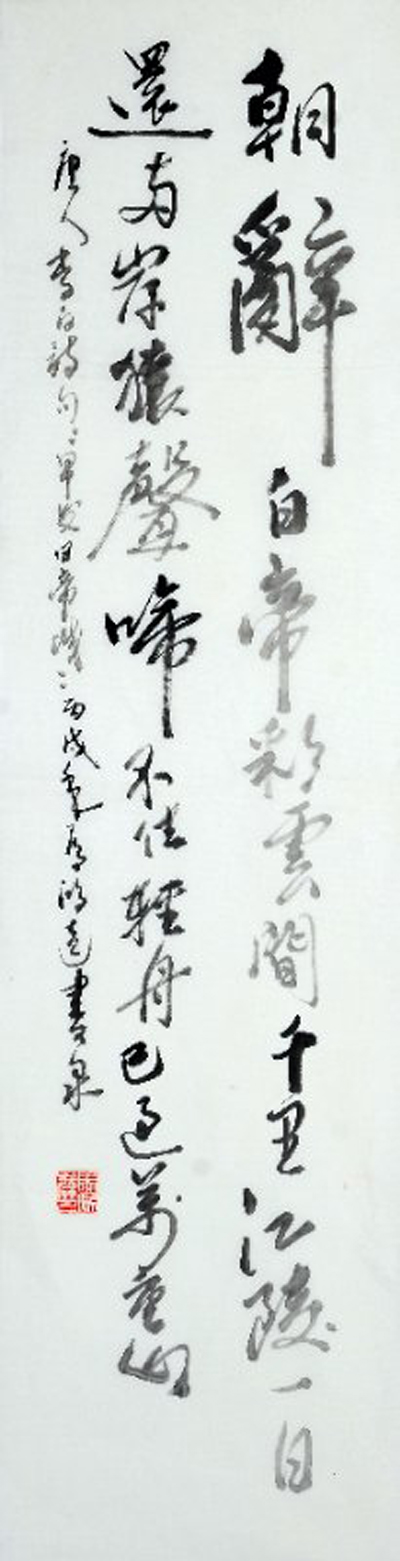 朝辭白帝彩雲間千里江陵一日
還兩岸猿聲啼不住輕舟已過萬重山
唐人李白詩句早發白帝城丙戌年書